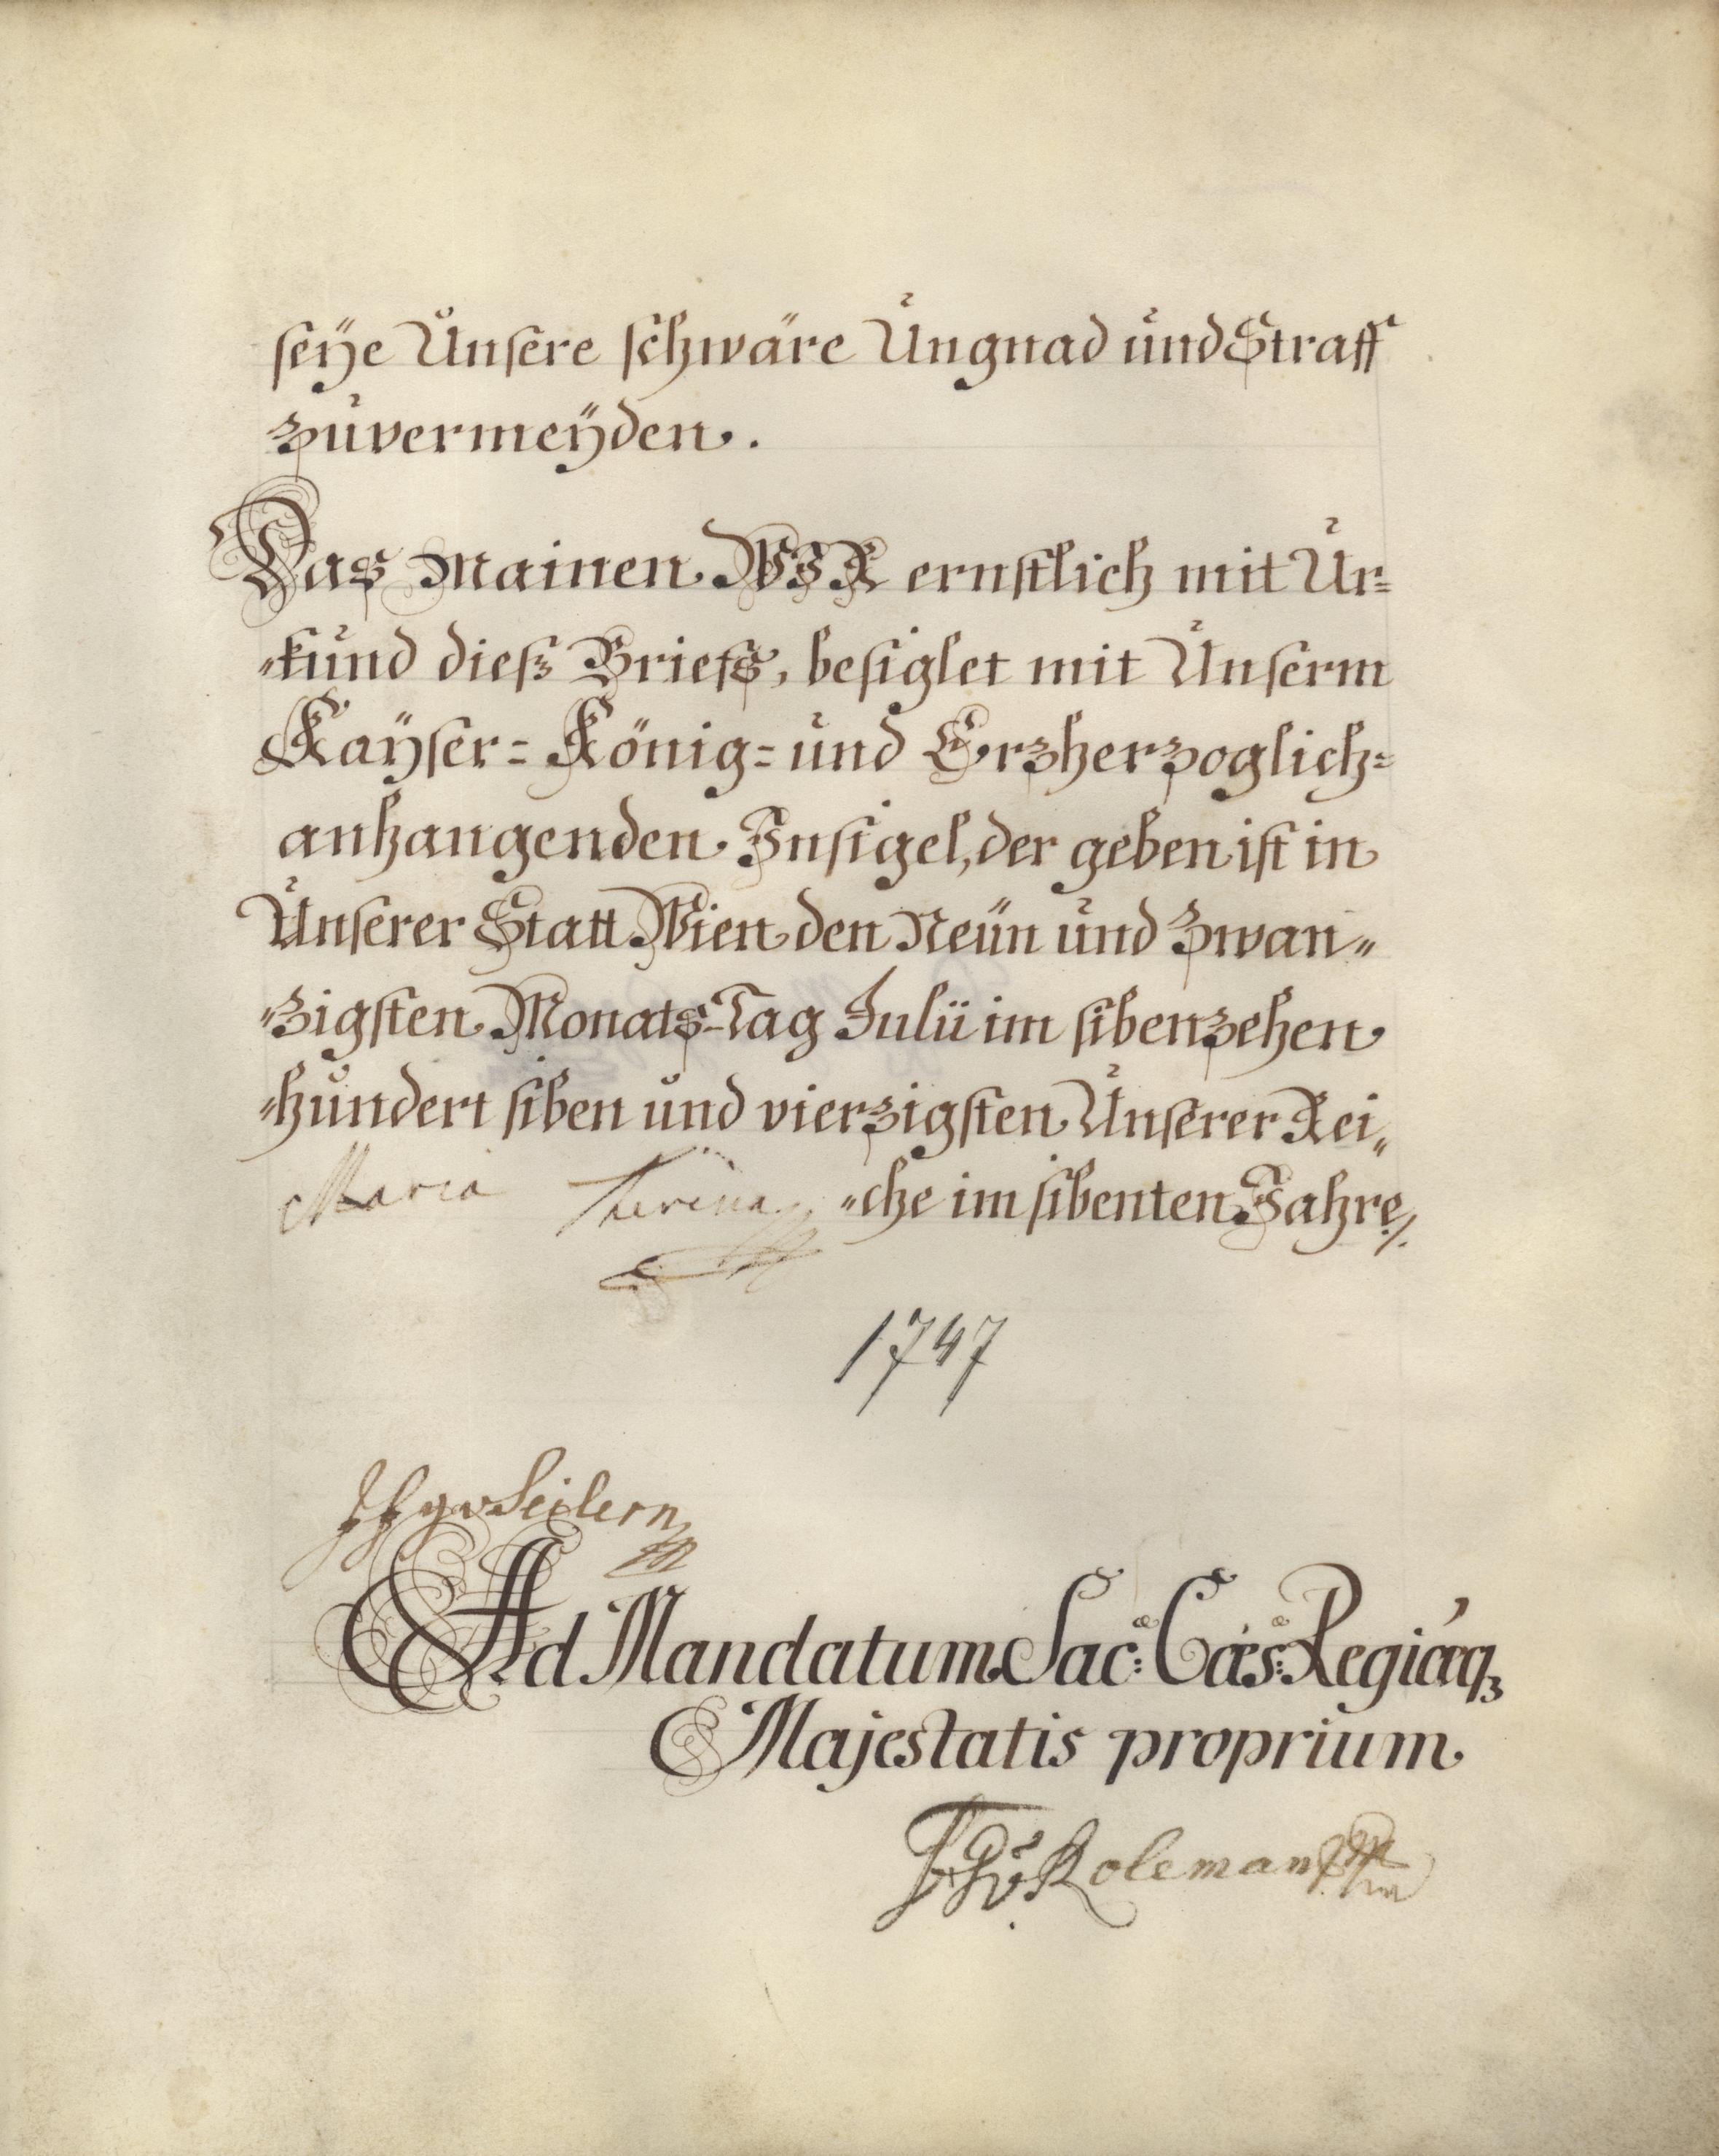 seÿe Unsere schwäre Ungnad und Straff
zuvermeÿden.
Das Mainen WIR ernstlich mit Ur=
"kund dieß Briefs, besiglet mit Unserm
Kaÿser= König= und Erzherzoglich=
anhangenden Insigel, der geben ist in
Unserer Statt Wien den Neün und Zwan"
"zigsten Monats-Tag Julii im sibenzehen
"hundert siben und vierzigsten Unserer Rei"
Maria Theresia "che im sibenten Jahre/.
1747
JFgvSeilern
Ad Mandatum Sacæ: Cæsæ: Regiæq3
Majestatis proprium
v Koleman